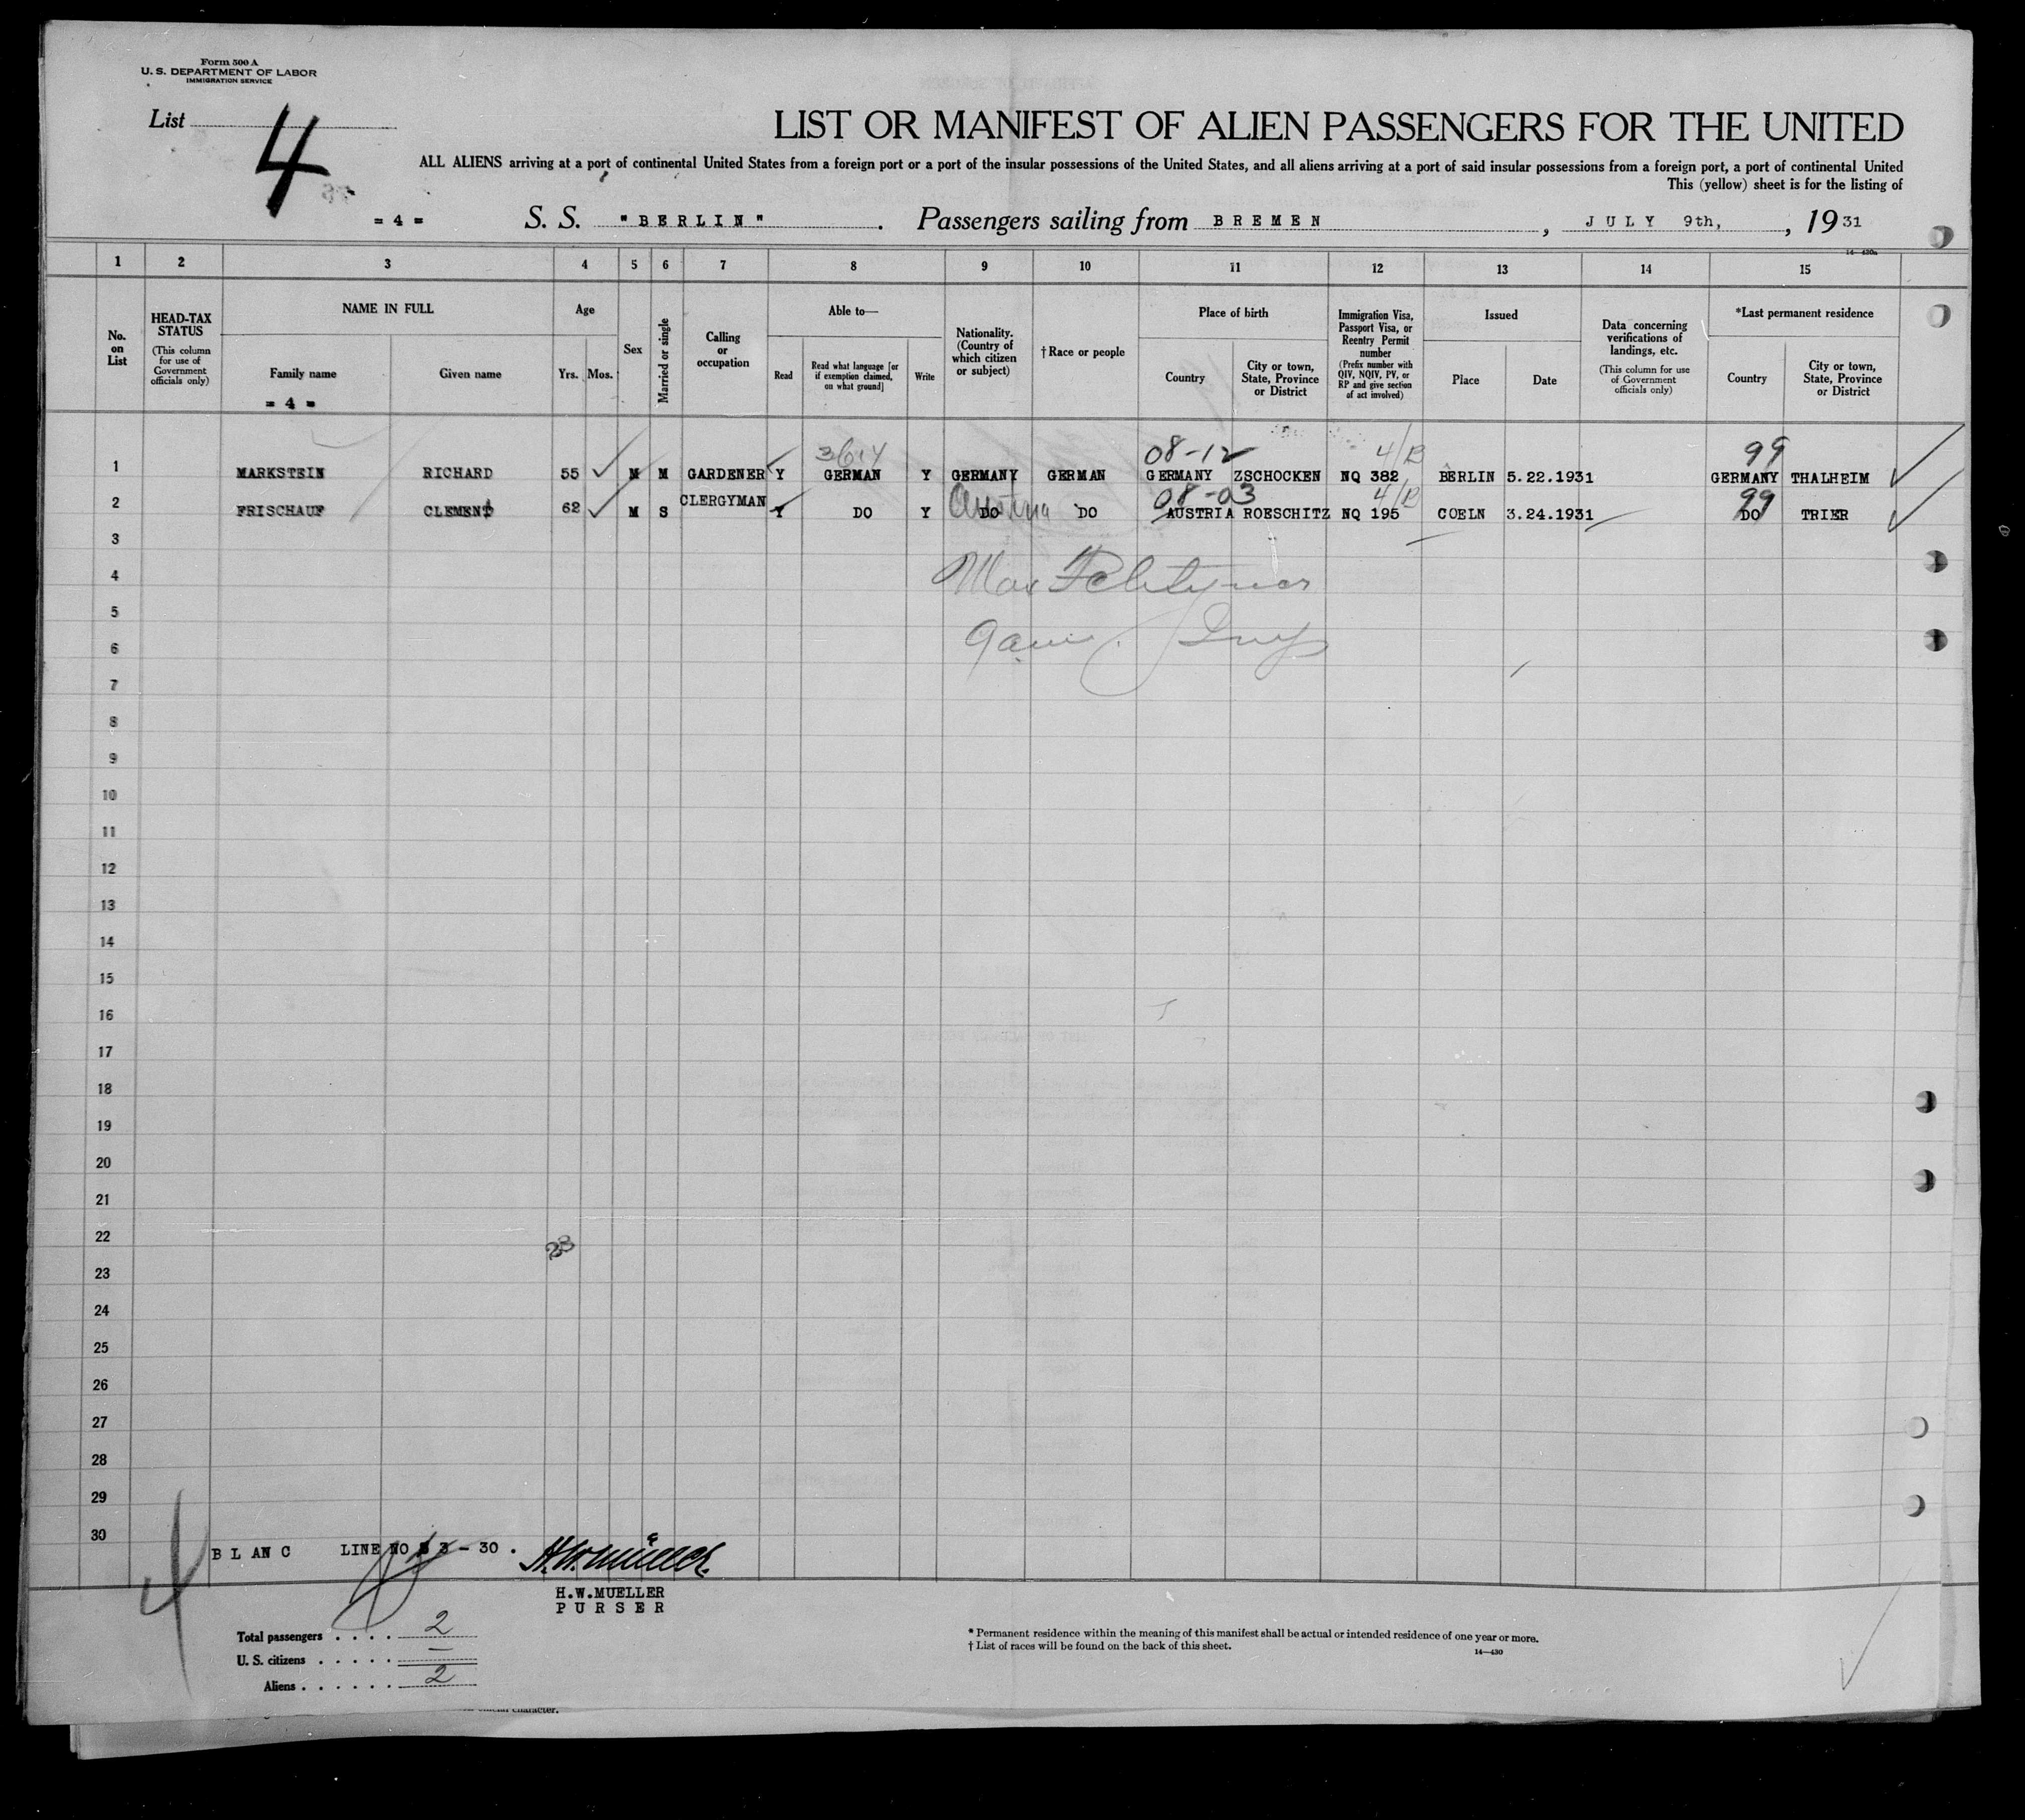 Form 500 A
U. S. DEPARTMENT OF LABOR
IMMIGRATION SERVICE
List 4
LIST OR MANIFEST OF ALIEN PASSENGERS FOR THE UNITED
ALL ALIENS arriving at a port of continental United States from a foreign port or a port of the insular possessions of the United States, and all aliens arriving at a port of said insular possessions from a foreign port, a port of continental United
This (yellow) sheet is for the listing of
= 4 = S. S. "BERLIN". Passengers sailing from BREMEN, JULY 9th, , 1931
14—430a
1 2 3 4 5 6 7 8 9 10 11 12 13 14 15
No. on List
HEAD-TAX STATUS
(This column for use of Government officials only)
NAME IN FULL
Family name
Given name
= 4 =
Age
Yrs. Mos.
Sex
Married or single
Calling or occupation
Able to—
Read
Read what language [or if exemption claimed, on what ground]
Write
Nationality. (Country of which citizen or subject)
†Race or people
Place of birth
Country
City or town, State, Province or District
Immigration Visa, Passport Visa, or Reentry Permit number
(Prefix number with QIV, NQIV, PV, or RP and give section of act involved)
Issued
Place
Date
Data concerning verifications of landings, etc.
(This column for use of Government officials only)
*Last permanent residence
Country
City or town, State, Province or District
3614 08-12 4/B 99
1 MARKSTEIN RICHARD 55 M M GARDENER Y GERMAN Y GERMANY GERMAN GERMANY ZSCHOCKEN NQ 382 BERLIN 5.22.1931 GERMANY THALHEIM
Austria 08-03 4/B 99
2 FRISCHAUF CLEMENT 62 M S CLERGYMAN Y DO Y DO DO AUSTRIA ROESCHITZ NQ 195 COELN 3.24.1931 DO TRIER
3
4 Max
5
6
7
8
9
10
11
12
13
14
15
16
17
18
19
20
21
22
23
24
25
26
27
28
29
30
BLANC LINE NO 3 - 30 .
H.W. Mueller
H.W.MUELLER
PURSER
Total passengers . . . . 2
U. S. citizens . . . . . —
Aliens . . . . . . 2
* Permanent residence within the meaning of this manifest shall be actual or intended residence of one year or more.
† List of races will be found on the back of this sheet.
14—430
character.